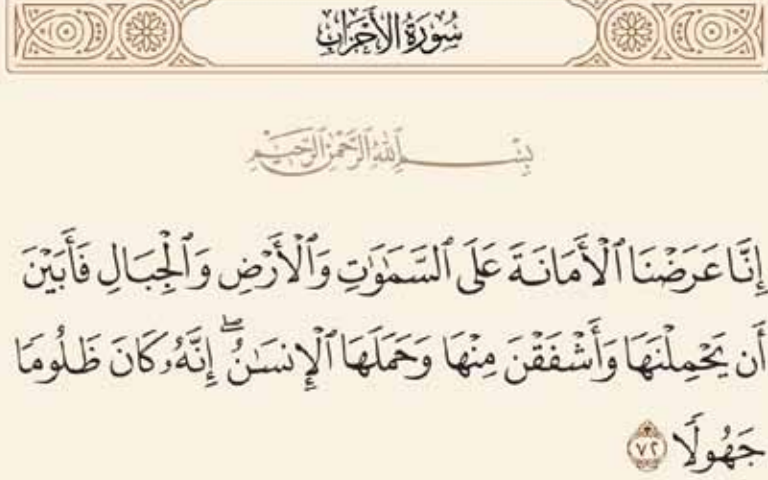 سُورَةُ الأَحْزَابِ
بِسْمِ اللَّهِ الرَّحْمَٰنِ الرَّحِيمِ
إِنَّا عَرَضْنَا ٱلْأَمَانَةَ عَلَى ٱلسَّمَٰوَٰتِ وَٱلْأَرْضِ وَٱلْجِبَالِ فَأَبَيْنَ
أَن يَحْمِلْنَهَا وَأَشْفَقْنَ مِنْهَا وَحَمَلَهَا ٱلْإِنسَٰنُ ۖ إِنَّهُۥ كَانَ ظَلُومًا
جَهُولًا ٧٢